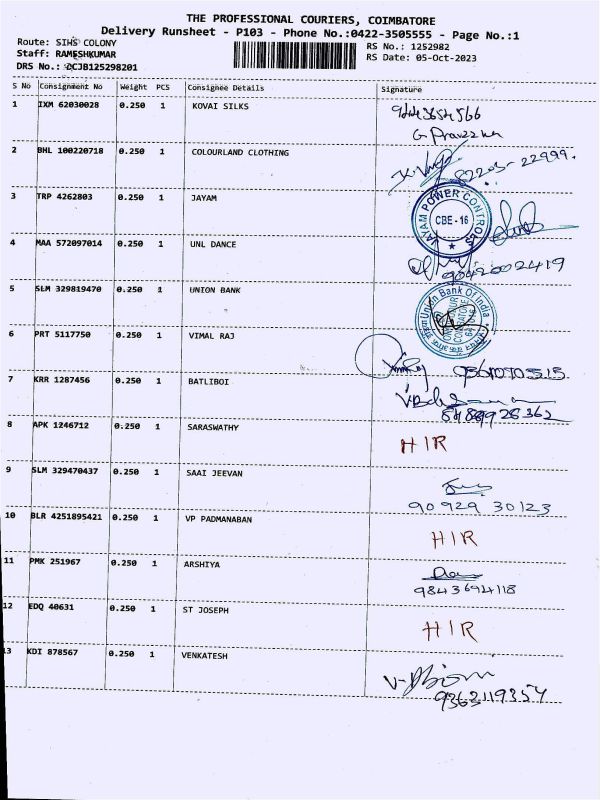 THE PROFESSIONAL COURIERS, COIMBATORE
Delivery Runsheet - P103 - Phone No.:0422-3505555 - Page No.:1
Route: SIHS COLONY
Staff: RAMESHKUMAR
DRS No.: DCJB125298201
RS No.: 1252982
RS Date: 05-Oct-2023
S No Consignment No Weight PCS Consignee Details Signature
1 IXM 62030028 0.250 1 KOVAI SILKS
2 BHL 100220718 0.250 1 COLOURLAND CLOTHING
82203-22999.
3 TRP 4262803 0.250 1 JAYAM
JAYAM POWER CONTROLS
CBE-16
4 MAA 572097014 0.250 1 UNL DANCE
9842002419
5 SLM 329819470 0.250 1 UNION BANK
Union Bank Of India
6 PRT 5117750 0.250 1 VIMAL RAJ
7 KRR 1287456 0.250 1 BATLIBOI
8 APK 1246712 0.250 1 SARASWATHY
HIR
9 SLM 329470437 0.250 1 SAAI JEEVAN
90929 30123
10 BLR 4251895421 0.250 1 VP PADMANABAN
HIR
11 PMK 251967 0.250 1 ARSHIYA
9843694118
12 EDQ 40631 0.250 1 ST JOSEPH
HIR
13 KDI 878567 0.250 1 VENKATESH
9363119354